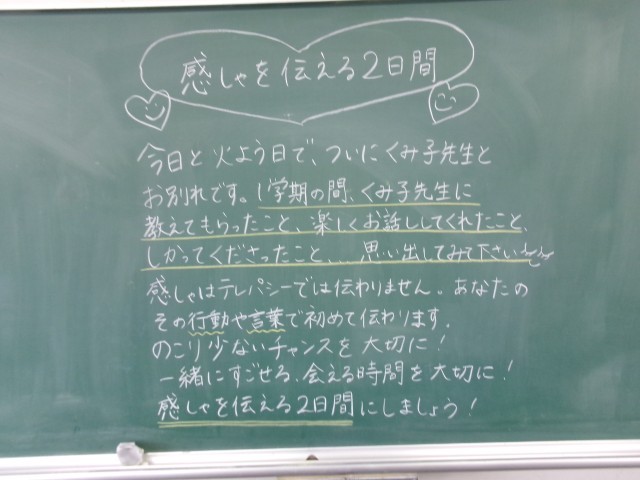 感しゃを伝える2日間
今日と火よう日で、ついにくみ子先生と
お別れです。1学期の間、くみ子先生に
教えてもらったこと、楽しくお話ししてくれたこと、
しかってくださったこと、...思い出してみて下さい
感しゃはテレパシーでは伝わりません。あなたの
その行動や言葉で初めて伝わります。
のこり少ないチャンスを大切に！
一緒にすごせる、会える時間を大切に！
感しゃを伝える2日間にしましょう！